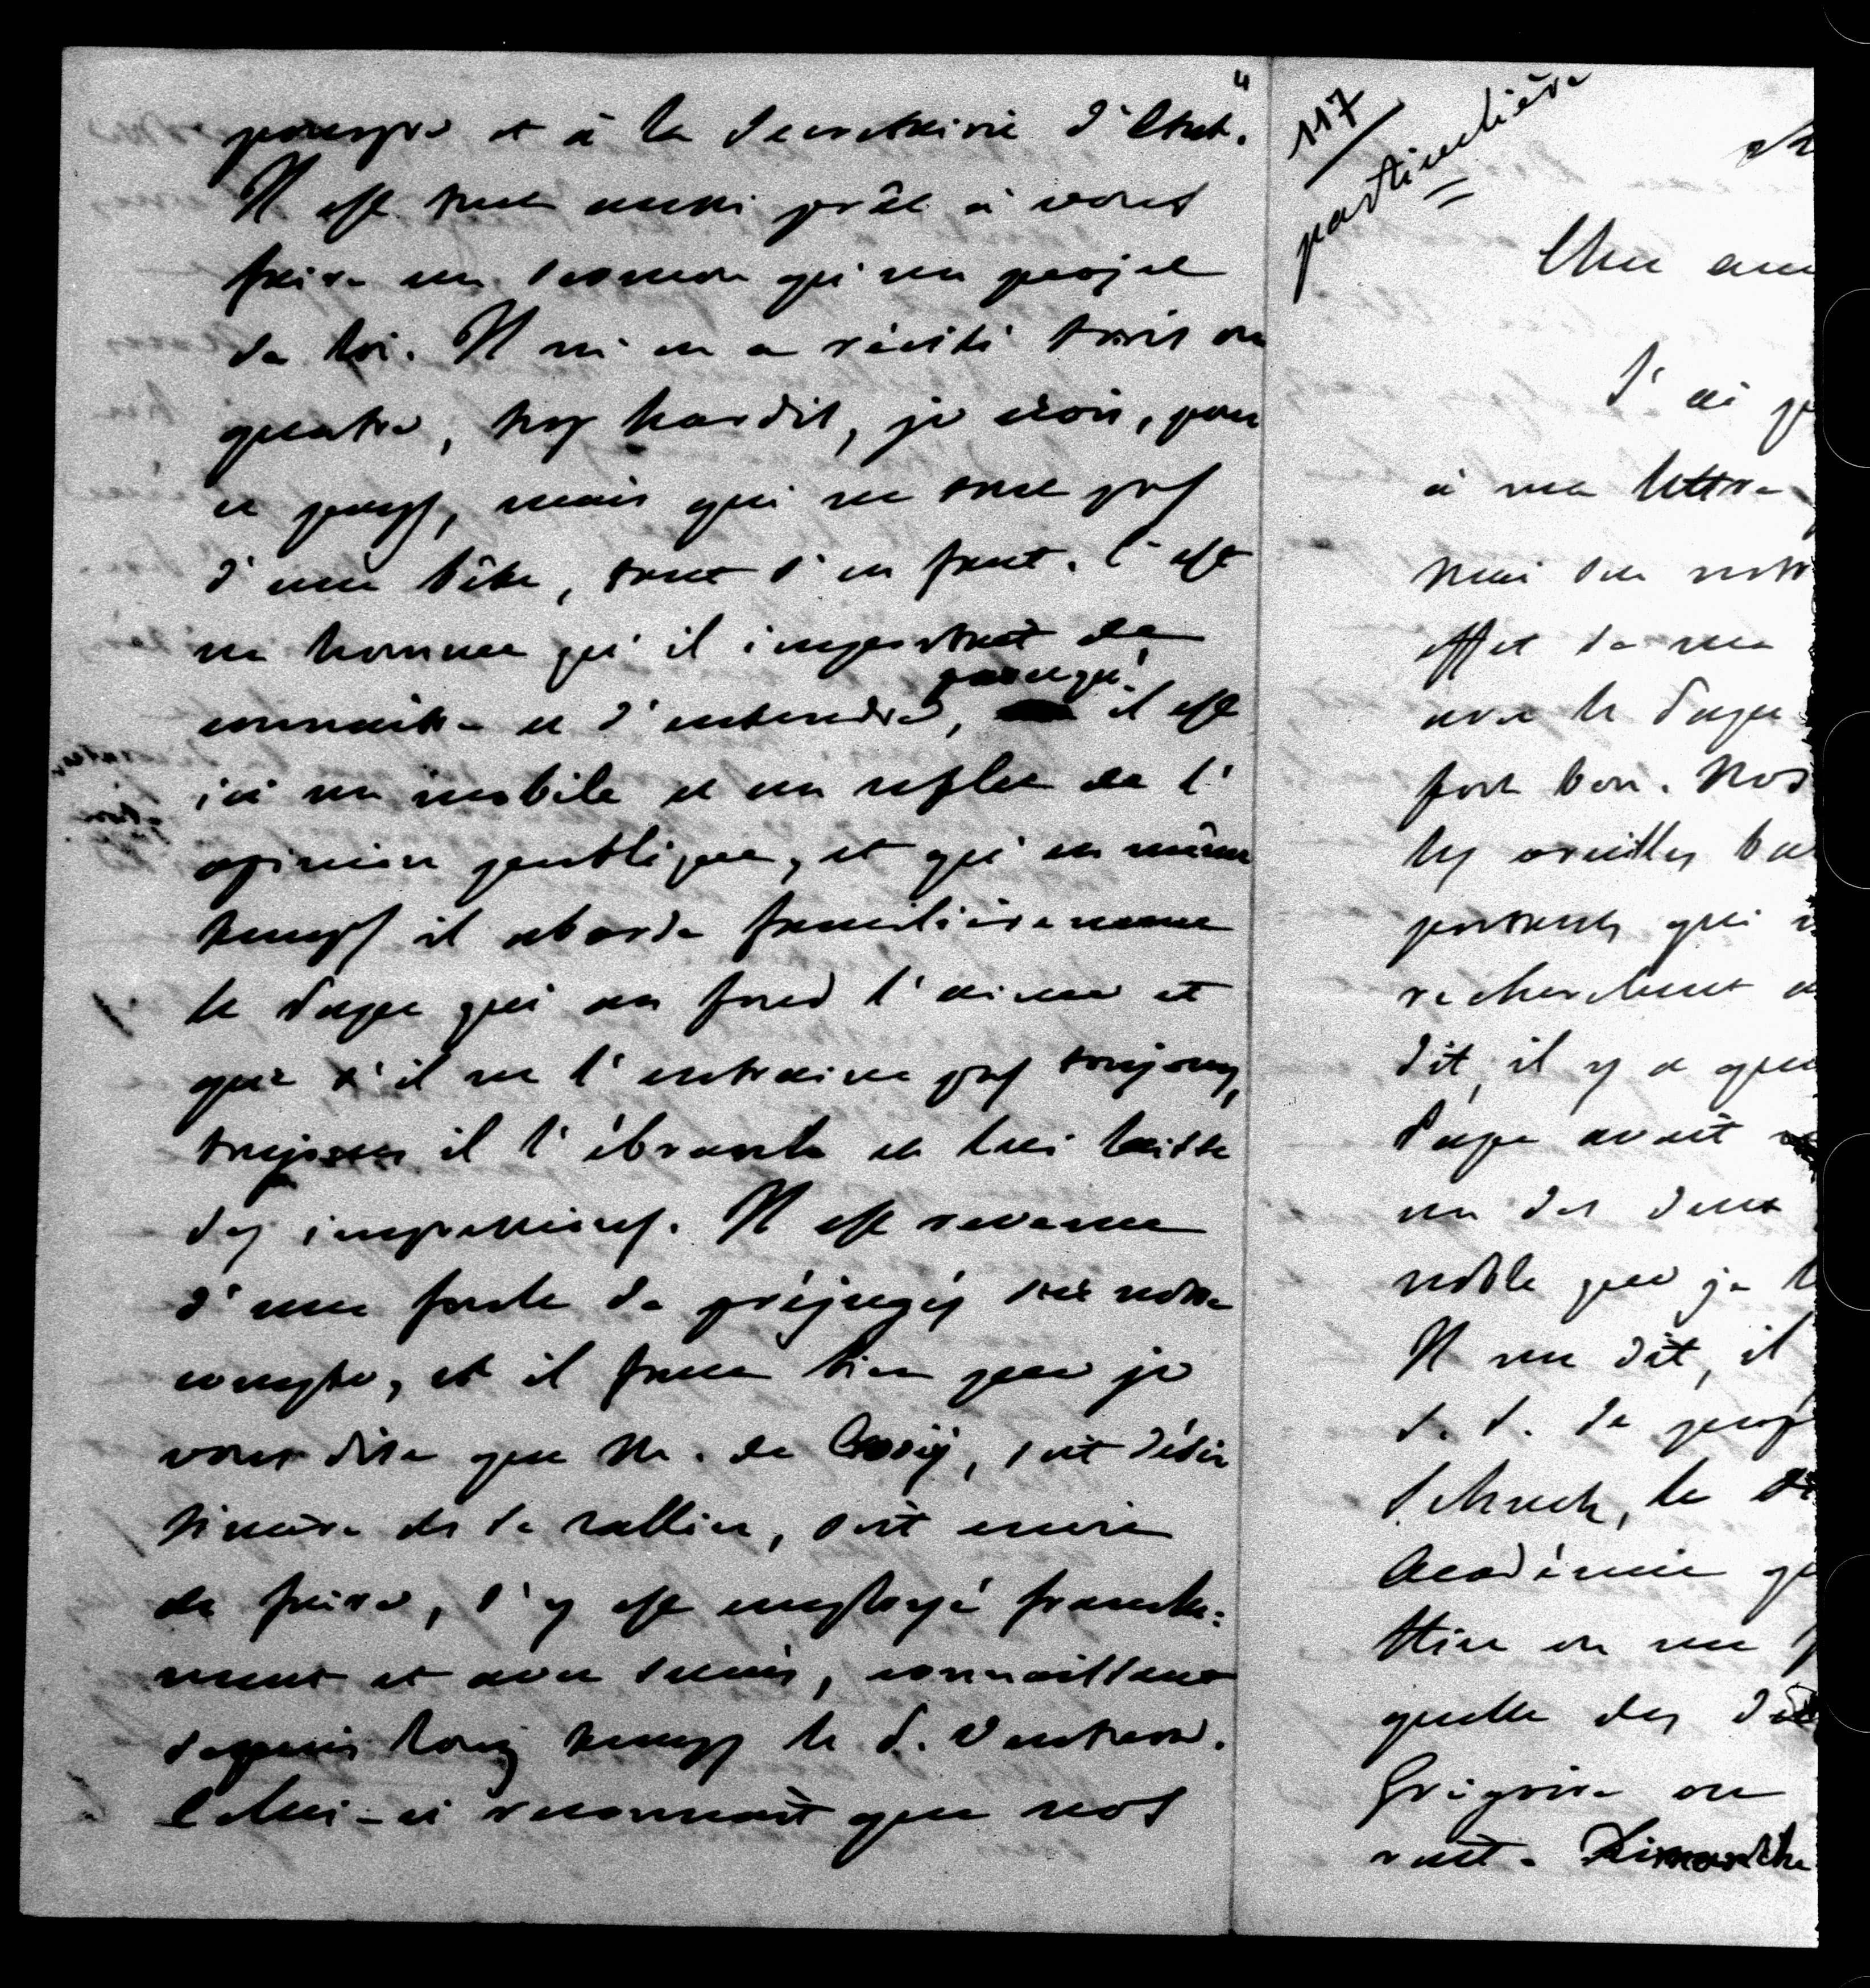 4
pourpre et à la Secrétairie d'Etat.
Il est tout aussi prêt à vous
faire un sermon qu'un projet
de loi. Il m'en a récité trois ou
quatre, trop hardis, je crois, pour
ce pays, mais qui ne sont pas
d'une bête, tant s'en faut. C'est
un homme qu'il importait de
connaître et d'entendre, parcequ'il est
ici un mobile et un reflet de l'
opinion publique, et qu'en même
temps il aborde familièrement
le Pape qui au fond l'aime et
que s'il ne l'entraine pas toujours,
toujours il l'ébranle et lui laisse
des impressions. Il est revenu
d'une foule de préjugés sur notre
compte, et il faut bien que je
vous dise que M. de , soit désir
sincère de se rallier, soit envie
de faire, s'y est employé franche=
ment et avec succès, connaissant
depuis long temps le P. Ventura.
Celui-ci reconnaît que nos
117
particulière
Cher am
J'ai
à ma lettre
mai sur notr
effet de ma
avec le Pape
fort bon. Nos
les oreilles
portants qui
recherchent
dit, il y a
Pape avait
un des deux
noble que je
Il me dit, il
S. S. de
le
Académie
on me
quelle des
Grégoire ou
Dimanche